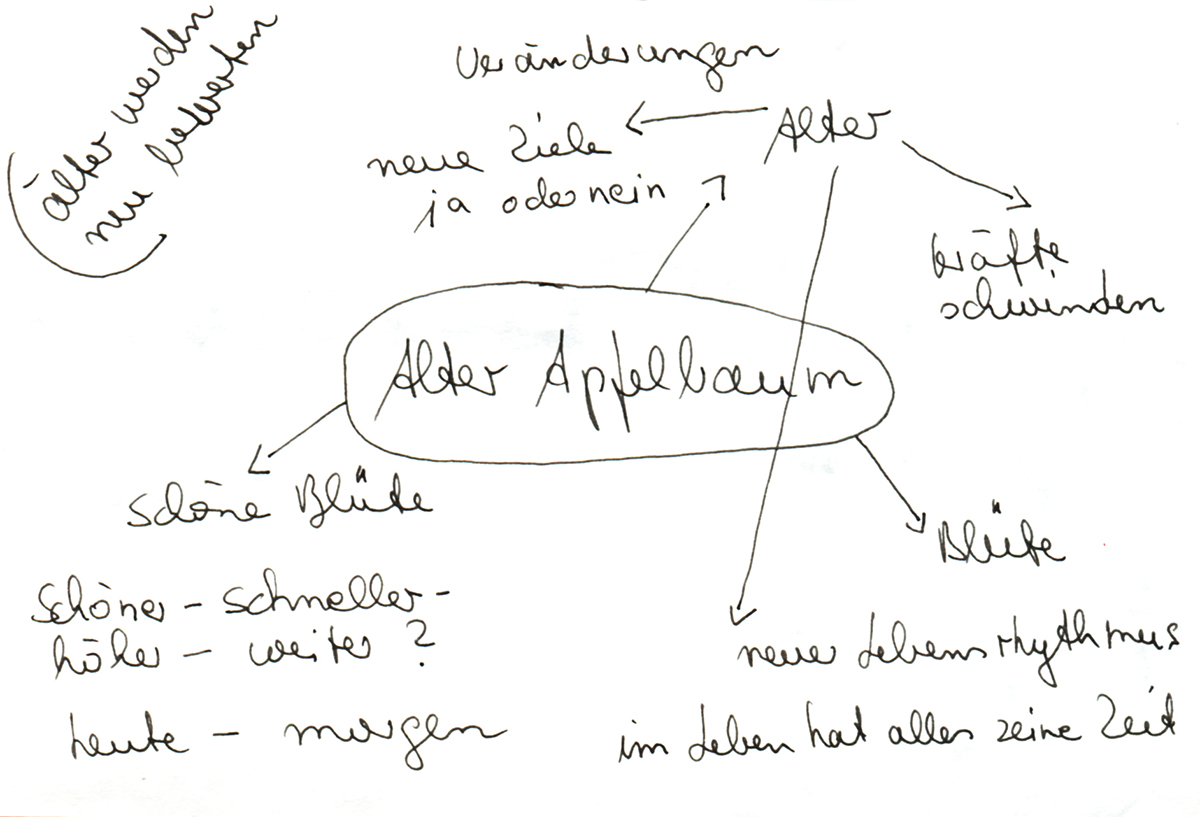 älter werden
neu bewerten
Veränderungen
Alter
neue Ziele
ja oder nein
Kräfte
schwinden
Alter Apfelbaum
schöne Blüte
Blüte
Schöner - schneller -
höher - weiter ?
neuer Lebensrhythmus
heute - morgen
im Leben hat alles seine Zeit